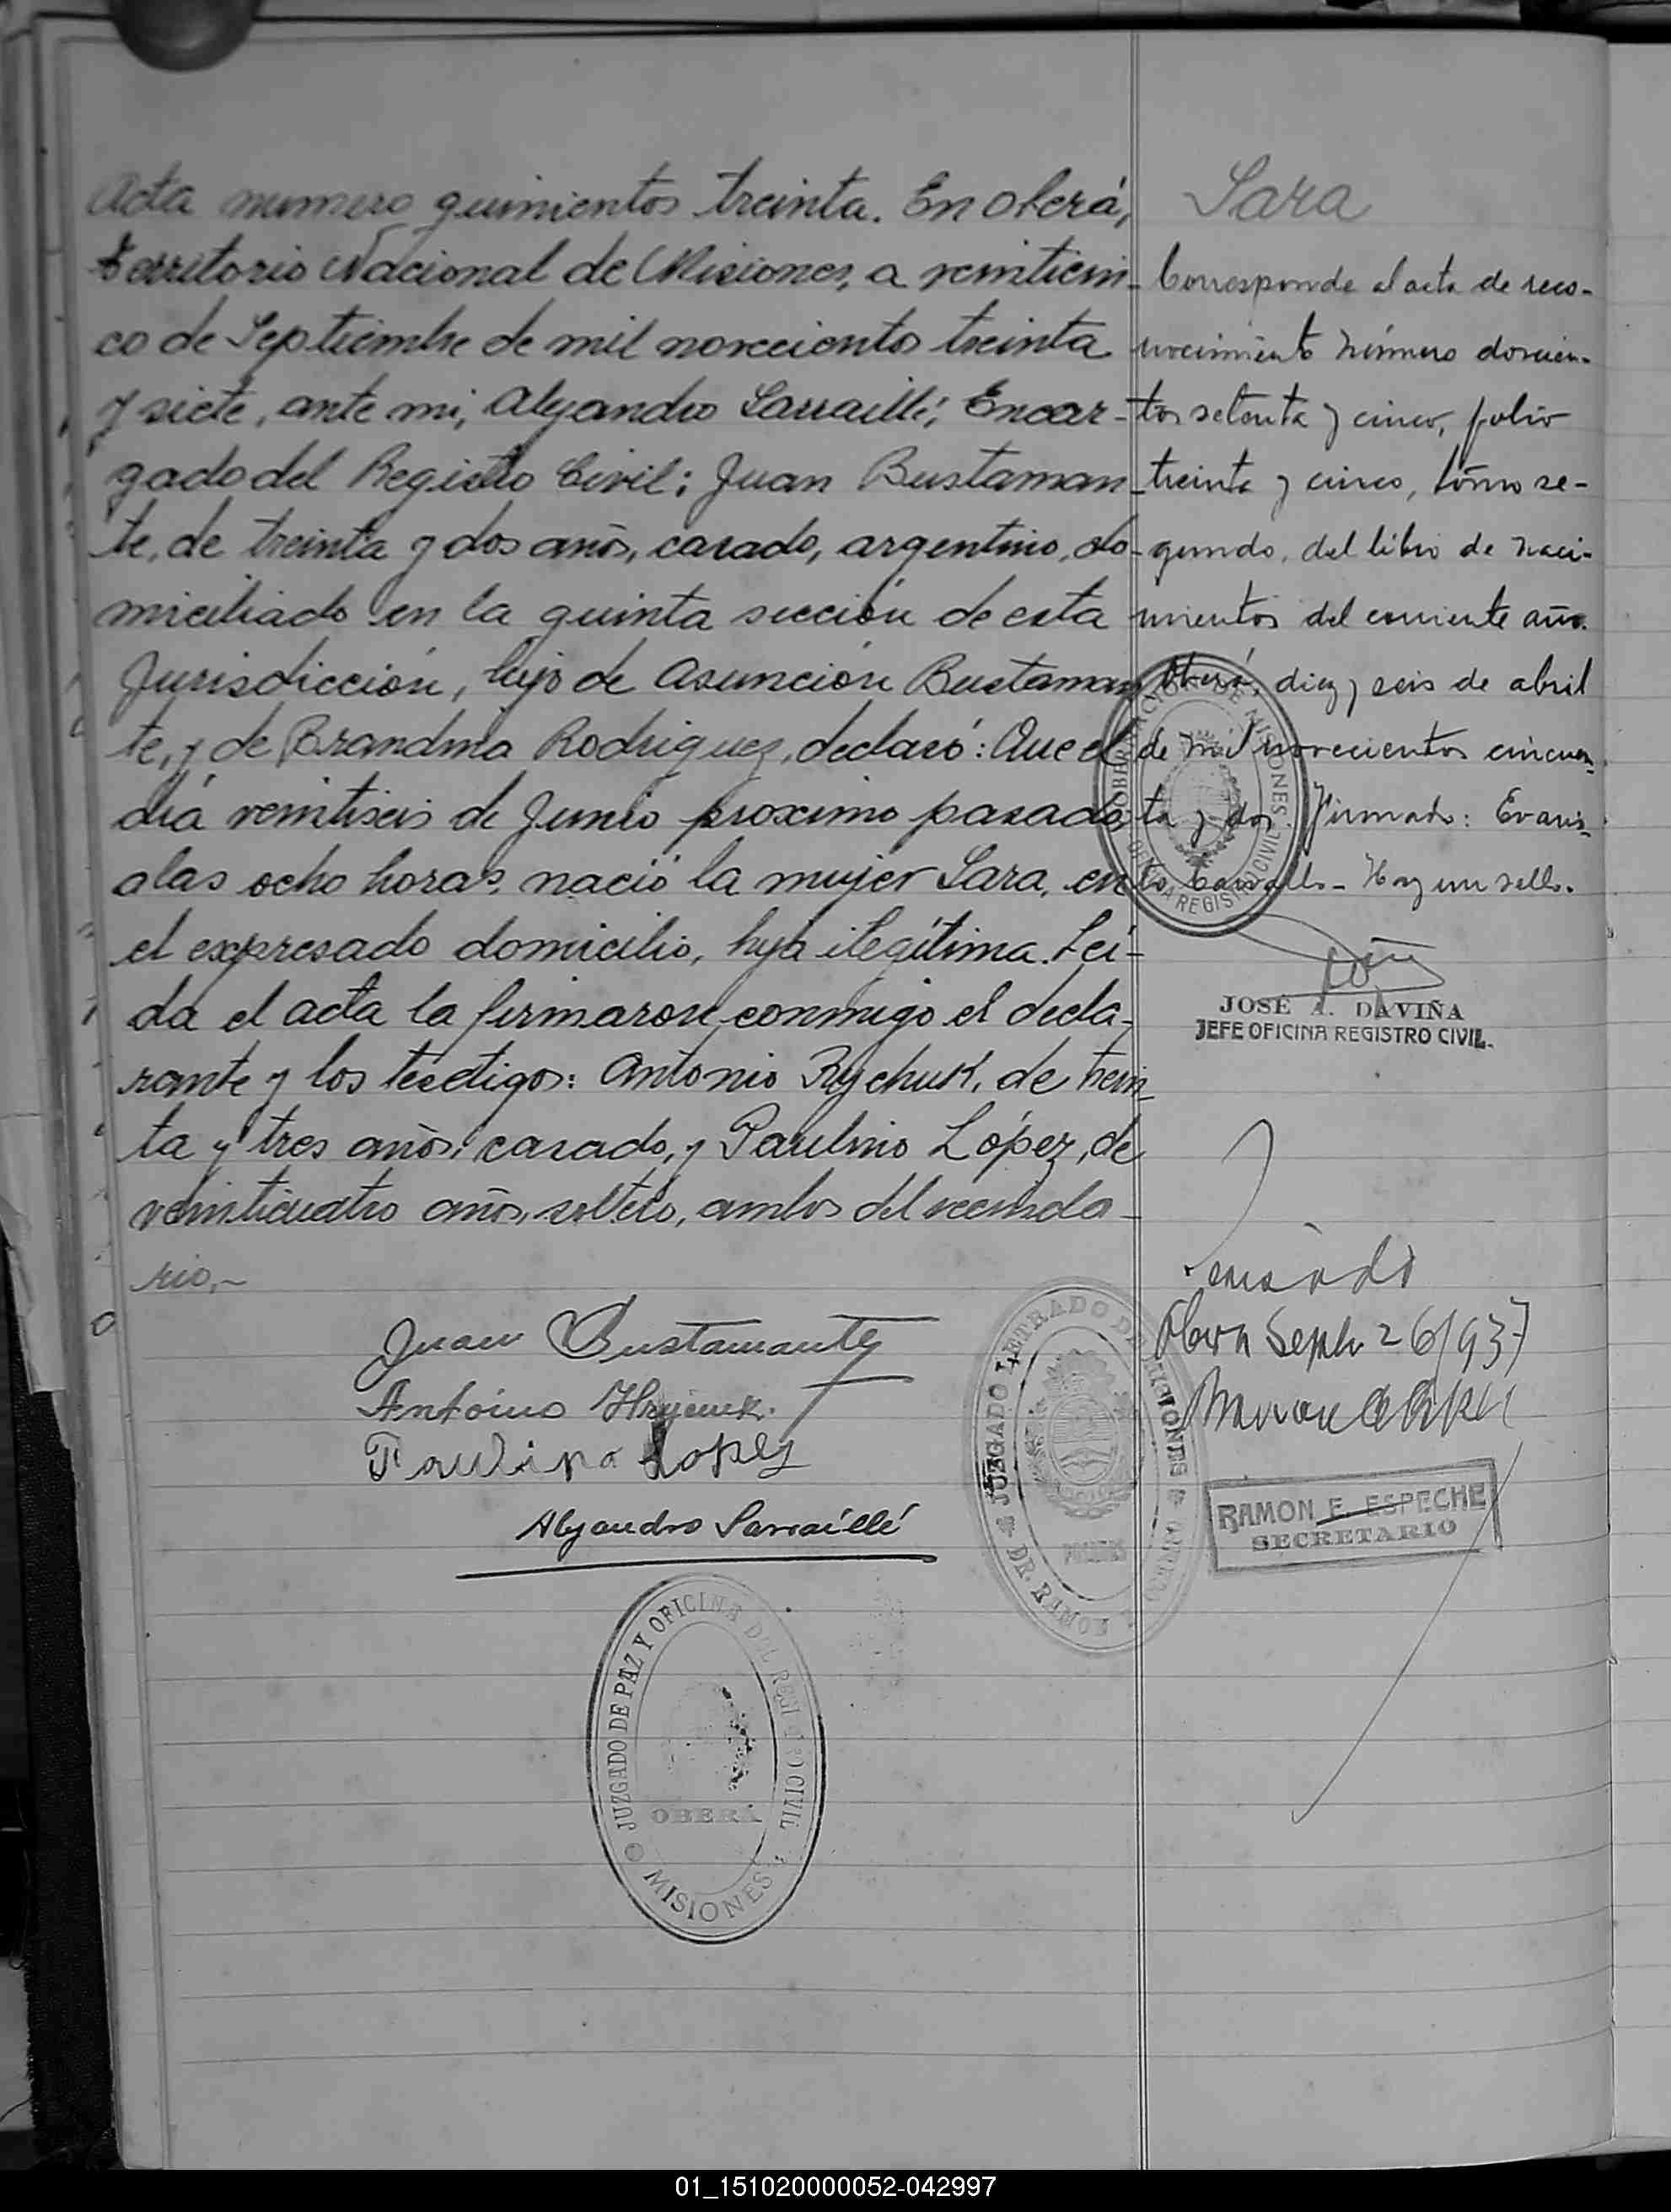 Acta numero quinientos treinta. En Oberá,
Territorio Nacional de Misiones, a veinticin-
co de Septiembre de mil novecientos treinta
y siete, ante mi, Alejandro Sarraillé, Encar-
gado del Registro Civil; Juan Bustaman-
te, de treinta y dos años, casado, argentino, do-
miciliado en la quinta sección de esta
Jurisdicción, hijo de Asunción Bustaman
te, y de Brandina Rodriguez, declaró: Que el
día veintiseis de Junio proximo pasado,
a las ocho horas, nació la mujer Sara, en
el expresado domicilio, hija ilegítima. Lei-
da el acta la firmaron conmigo el decla-
rante y los testigos: Antonio Rychuk, de trein
ta y tres años, casado, y Paulino López, de
veinticuatro años, soltero, ambos del vecinda-
rio,-
Juan Bustamante
Antonio
Paulino Lopez
Alejandro Sarraillé
JUZGADO DE PAZ Y OFICINA DEL REGISTRO CIVIL
OBERÁ
MISIONES
Sara
Corresponde al acta de reco-
nocimiento número doscien-
tos setenta y cinco, folio
treinta y cinco, tomo se-
gundo, del libro de naci-
mientos del corriente año.
Oberá, diez y seis de abril
de mil novecientos cincuen-
ta y dos. Firmado: Evaris-
to Carvallo - Hay un sello.
GOBERNACION DE MISIONES
OFICINA REGISTRO CIVIL
JOSÉ A. DAVIÑA
JEFE OFICINA REGISTRO CIVIL.
Obera Sepbr 26/937
JUZGADO LETRADO DE
DR. RAMON
RAMON E. ESPECHE
SECRETARIO
01_151020000052-042997